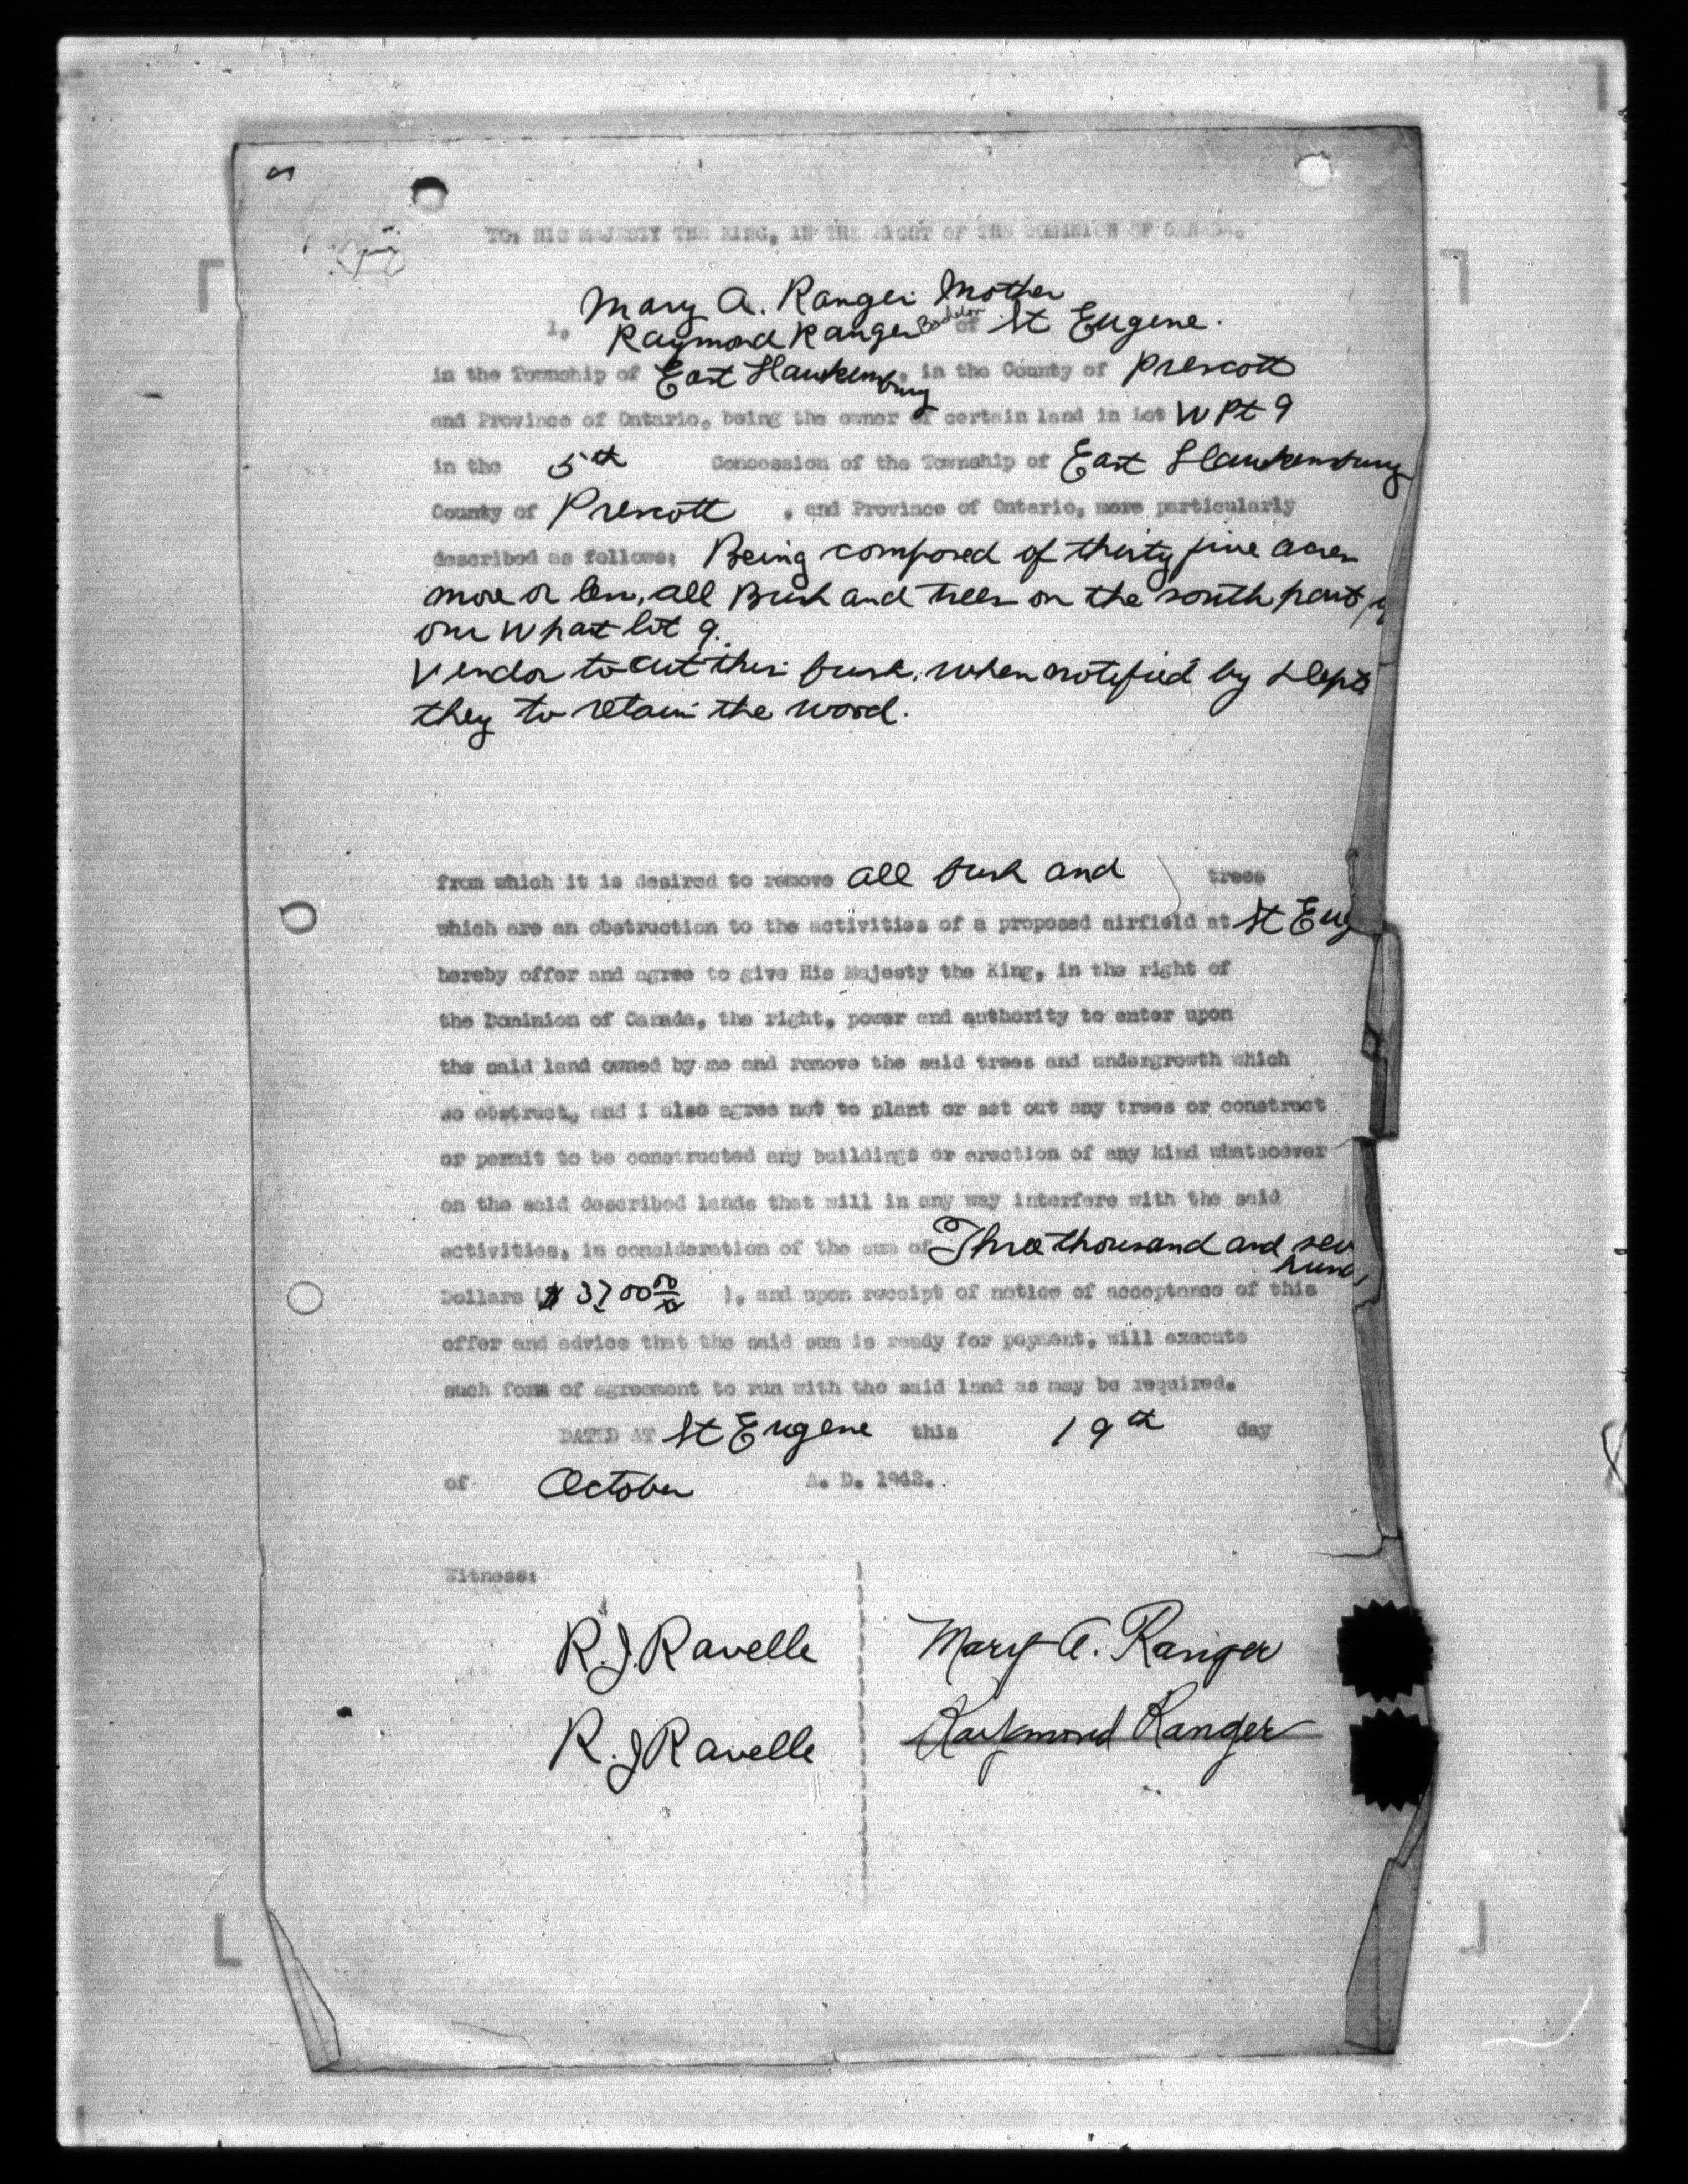 TO: HIS MAJESTY THE KING, IN THE RIGHT OF THE DOMINION OF CANADA.
Mary A. Ranger Mother
I, Raymond Ranger Bachelor of St Eugene.
in the Township of East Hawkesbury, in the County of Prescott
and Province of Ontario, being the owner of certain land in Lot W Pt 9
in the 5th Concession of the Township of East Hawkesbury
County of Prescott , and Province of Ontario, more particularly
described as follows: Being composed of thirty five acres
more or less, all Bush and trees on the south part of
our W part lot 9.
Vendor to cut this bush, when notified by Dept
they to retain the wood.
from which it is desired to remove all bush and trees
which are an obstruction to the activities of a proposed airfield at St Eug
hereby offer and agree to give His Majesty the King, in the right of
the Dominion of Canada, the right, power and authority to enter upon
the said land owned by me and remove the said trees and undergrowth which
so obstruct, and I also agree not to plant or set out any trees or construct
or permit to be constructed any buildings or erection of any kind whatsoever
on the said described lands that will in any way interfere with the said
activities, in consideration of the sum of Three thousand and sev
hund
Dollars ($ 3700 00/xx ), and upon receipt of notice of acceptance of this
offer and advice that the said sum is ready for payment, will execute
such form of agreement to run with the said land as may be required.
DATED AT St Eugene this 19th day
of October A. D. 1942.
Witness:
R. J. Ravelle Mary A. Ranger
R. J Ravelle Raymond Ranger